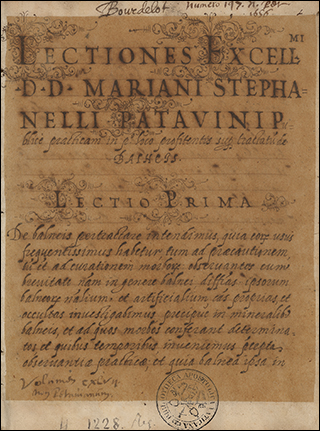 Bourdelot Numero 149.
MI
LECTIONES EXCELL
D·D· MARIANI STEPHA=
NELLI PATAVINI P
blice practicam in p.º loco profitentis sup. tractatu de
BALNEIS.
LECTIO PRIMA
De balneis pertractare intendimus, quia eorum usus
frequentissimus habetur tum ad praecautionem,
et ad curationem morborum observantes cum
brevitate nam in genere balnei diffiās ipsorum
balneorum naālium et artificialium seu proprias et
occultas investigabimus precipue in mineralibus
balneis, et ad quos morbos conferant determina,
tes et quibus temporibus inveniemus
observantia practicae et quia balnea ipsa in
Volumus CXLVII
1228. Reg.